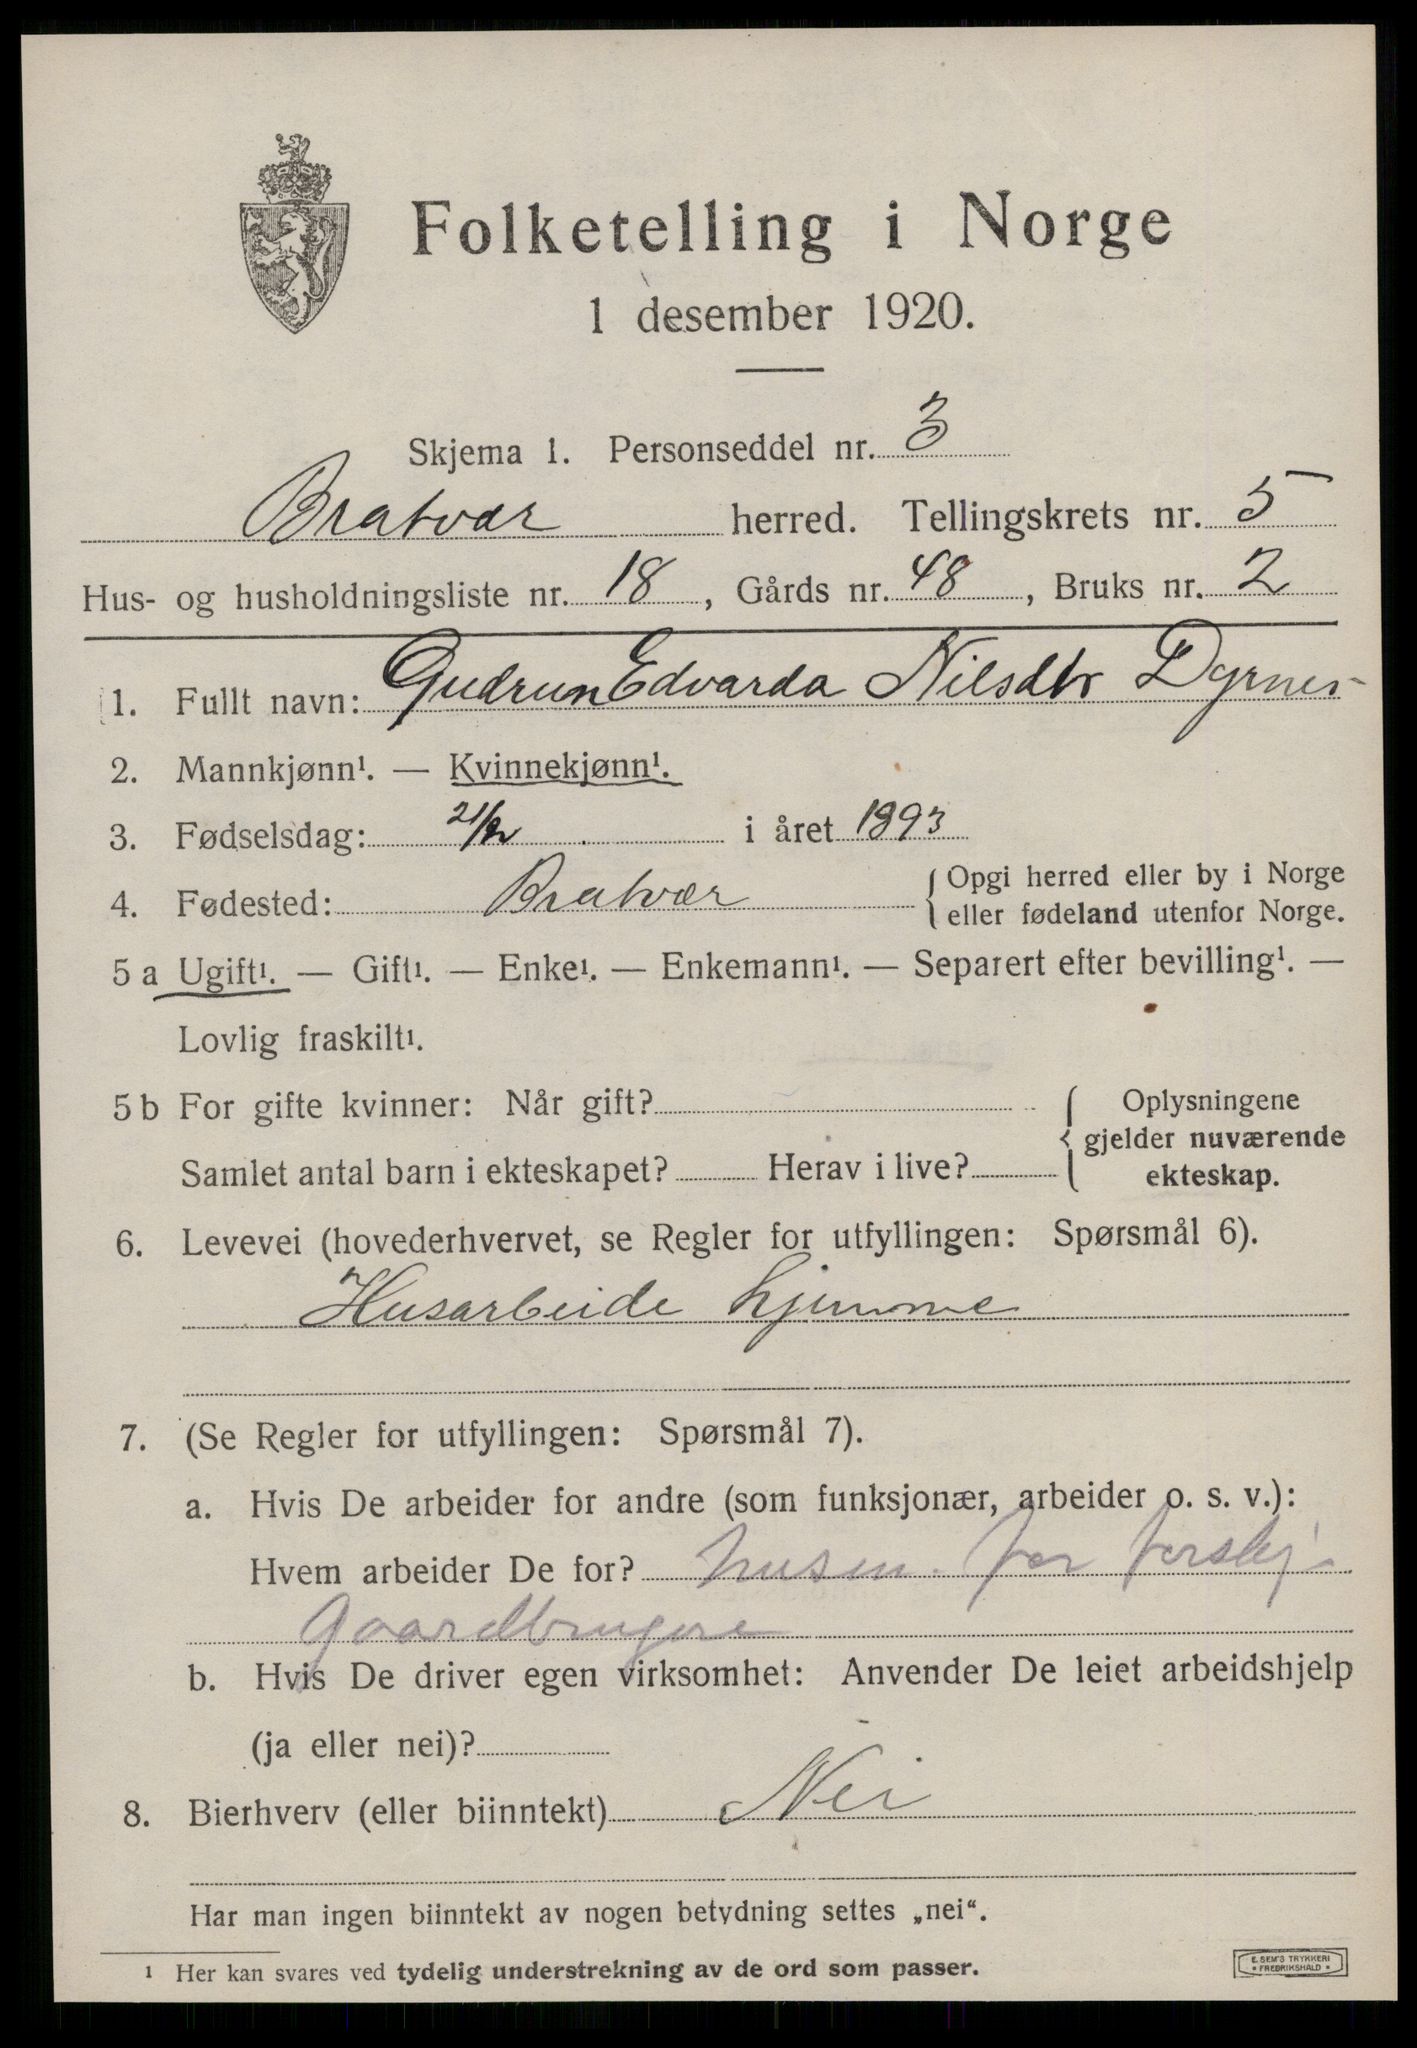 Folketelling i Norge
1 desember 1920.
Skjema 1. Personseddel nr. 3
Bratvær herred. Tellingskrets nr. 5
Hus- og husholdningsliste nr. 18, Gårds nr. 48, Bruks nr. 2
1. Fullt navn: Gudrun Edvarda Nilsdtr Dyrnes
2. Mannkjønn¹. — Kvinnekjønn¹.
3. Fødselsdag: 21/2 i året 1893
4. Fødested: Bratvær { Opgi herred eller by i Norge
eller fødeland utenfor Norge.
5 a Ugift¹. — Gift¹. — Enke¹. — Enkemann¹. — Separert efter bevilling¹. —
Lovlig fraskilt¹.
5 b For gifte kvinner: Når gift? { Oplysningene
gjelder nuværende
Samlet antal barn i ekteskapet? Herav i live? ekteskap.
6. Levevei (hovederhvervet, se Regler for utfyllingen: Spørsmål 6).
Husarbeide hjemme
7. (Se Regler for utfyllingen: Spørsmål 7).
a. Hvis De arbeider for andre (som funksjonær, arbeider o. s. v.):
Hvem arbeider De for? for forskj.
Gaardbrugere
b. Hvis De driver egen virksomhet: Anvender De leiet arbeidshjelp
(ja eller nei)?
8. Bierhverv (eller biinntekt) Nei
Har man ingen biinntekt av nogen betydning settes „nei“.
¹ Her kan svares ved tydelig understrekning av de ord som passer.
E. SEM'S TRYKKERI
• FREDRIKSHALD •